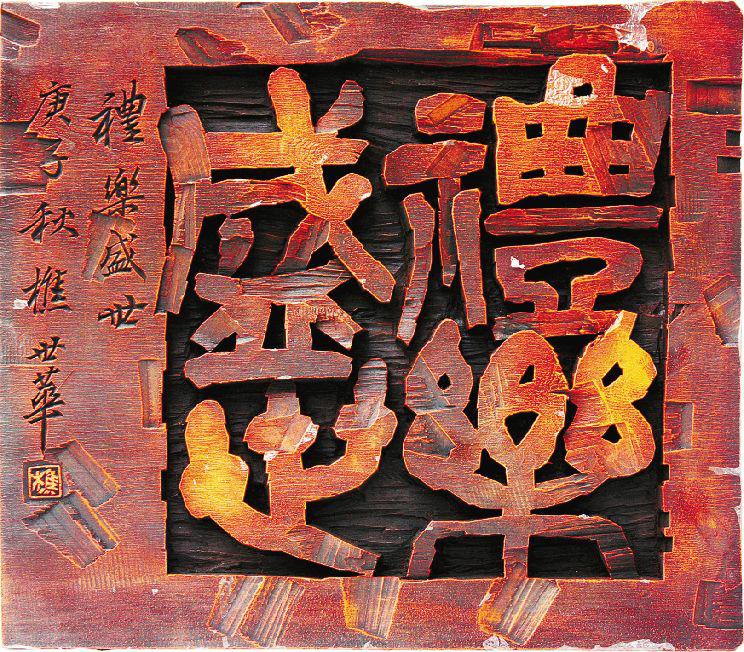 禮樂
盛世
禮樂盛世
庚子秋樵世華
樵